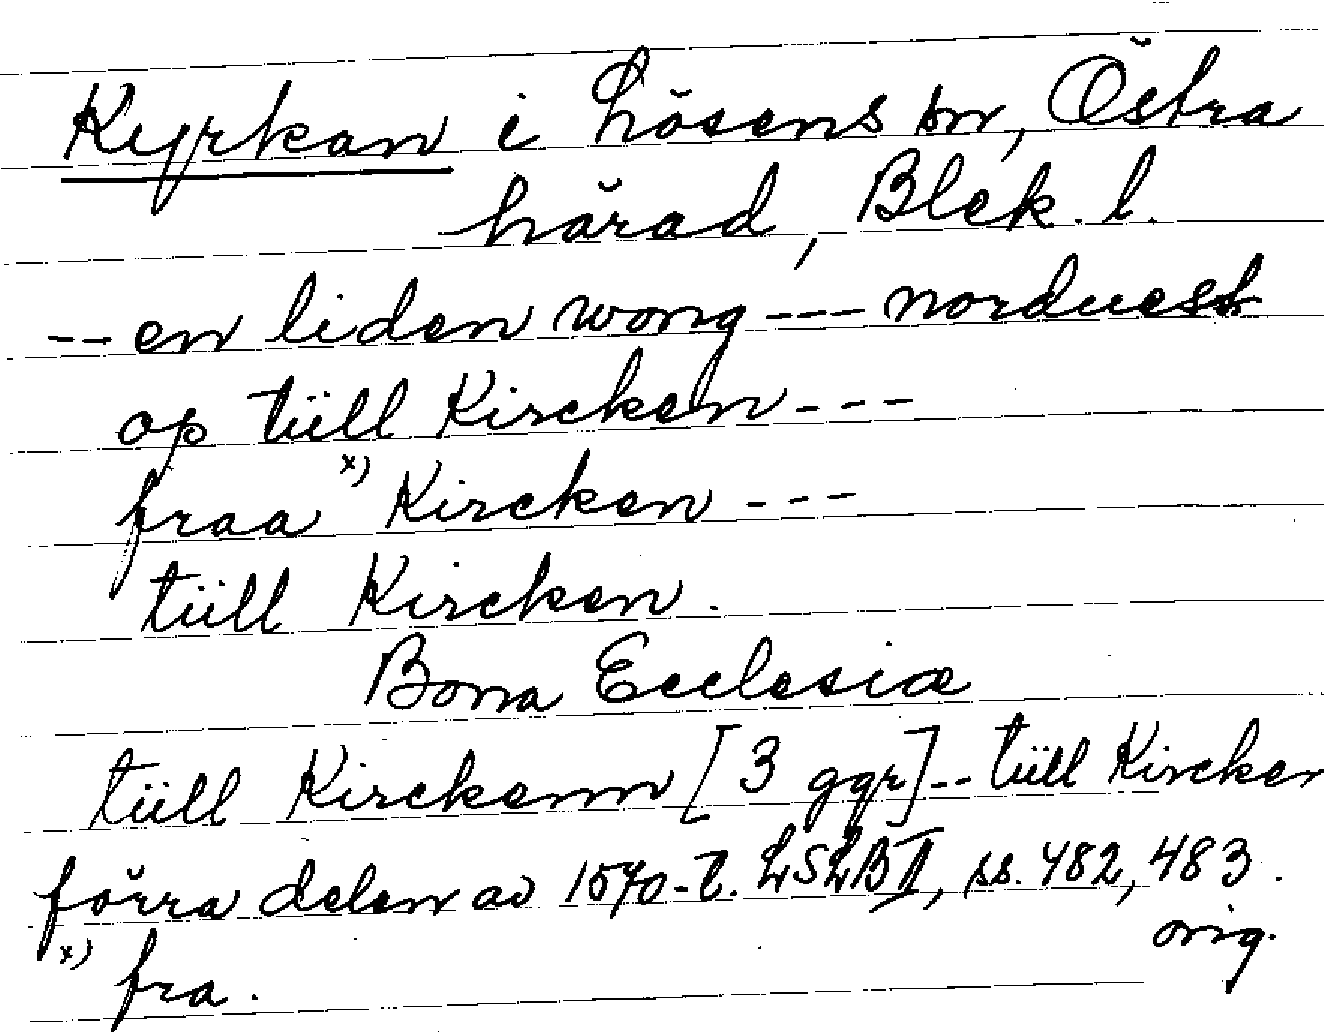 Kyrkan i Lösens sn, Östra
härad, Blek. l.
-- en liden wong --- norduest
op tüll Kircken ---
fraa x) Kircken ---
tüll Kircken.
Bona Ecclesiæ
tüll Kirckenn [3 ggr] -- tüll Kircken
förra delen av 1570-t. LSLB II, ss. 482, 483.
orig.
x) fra.